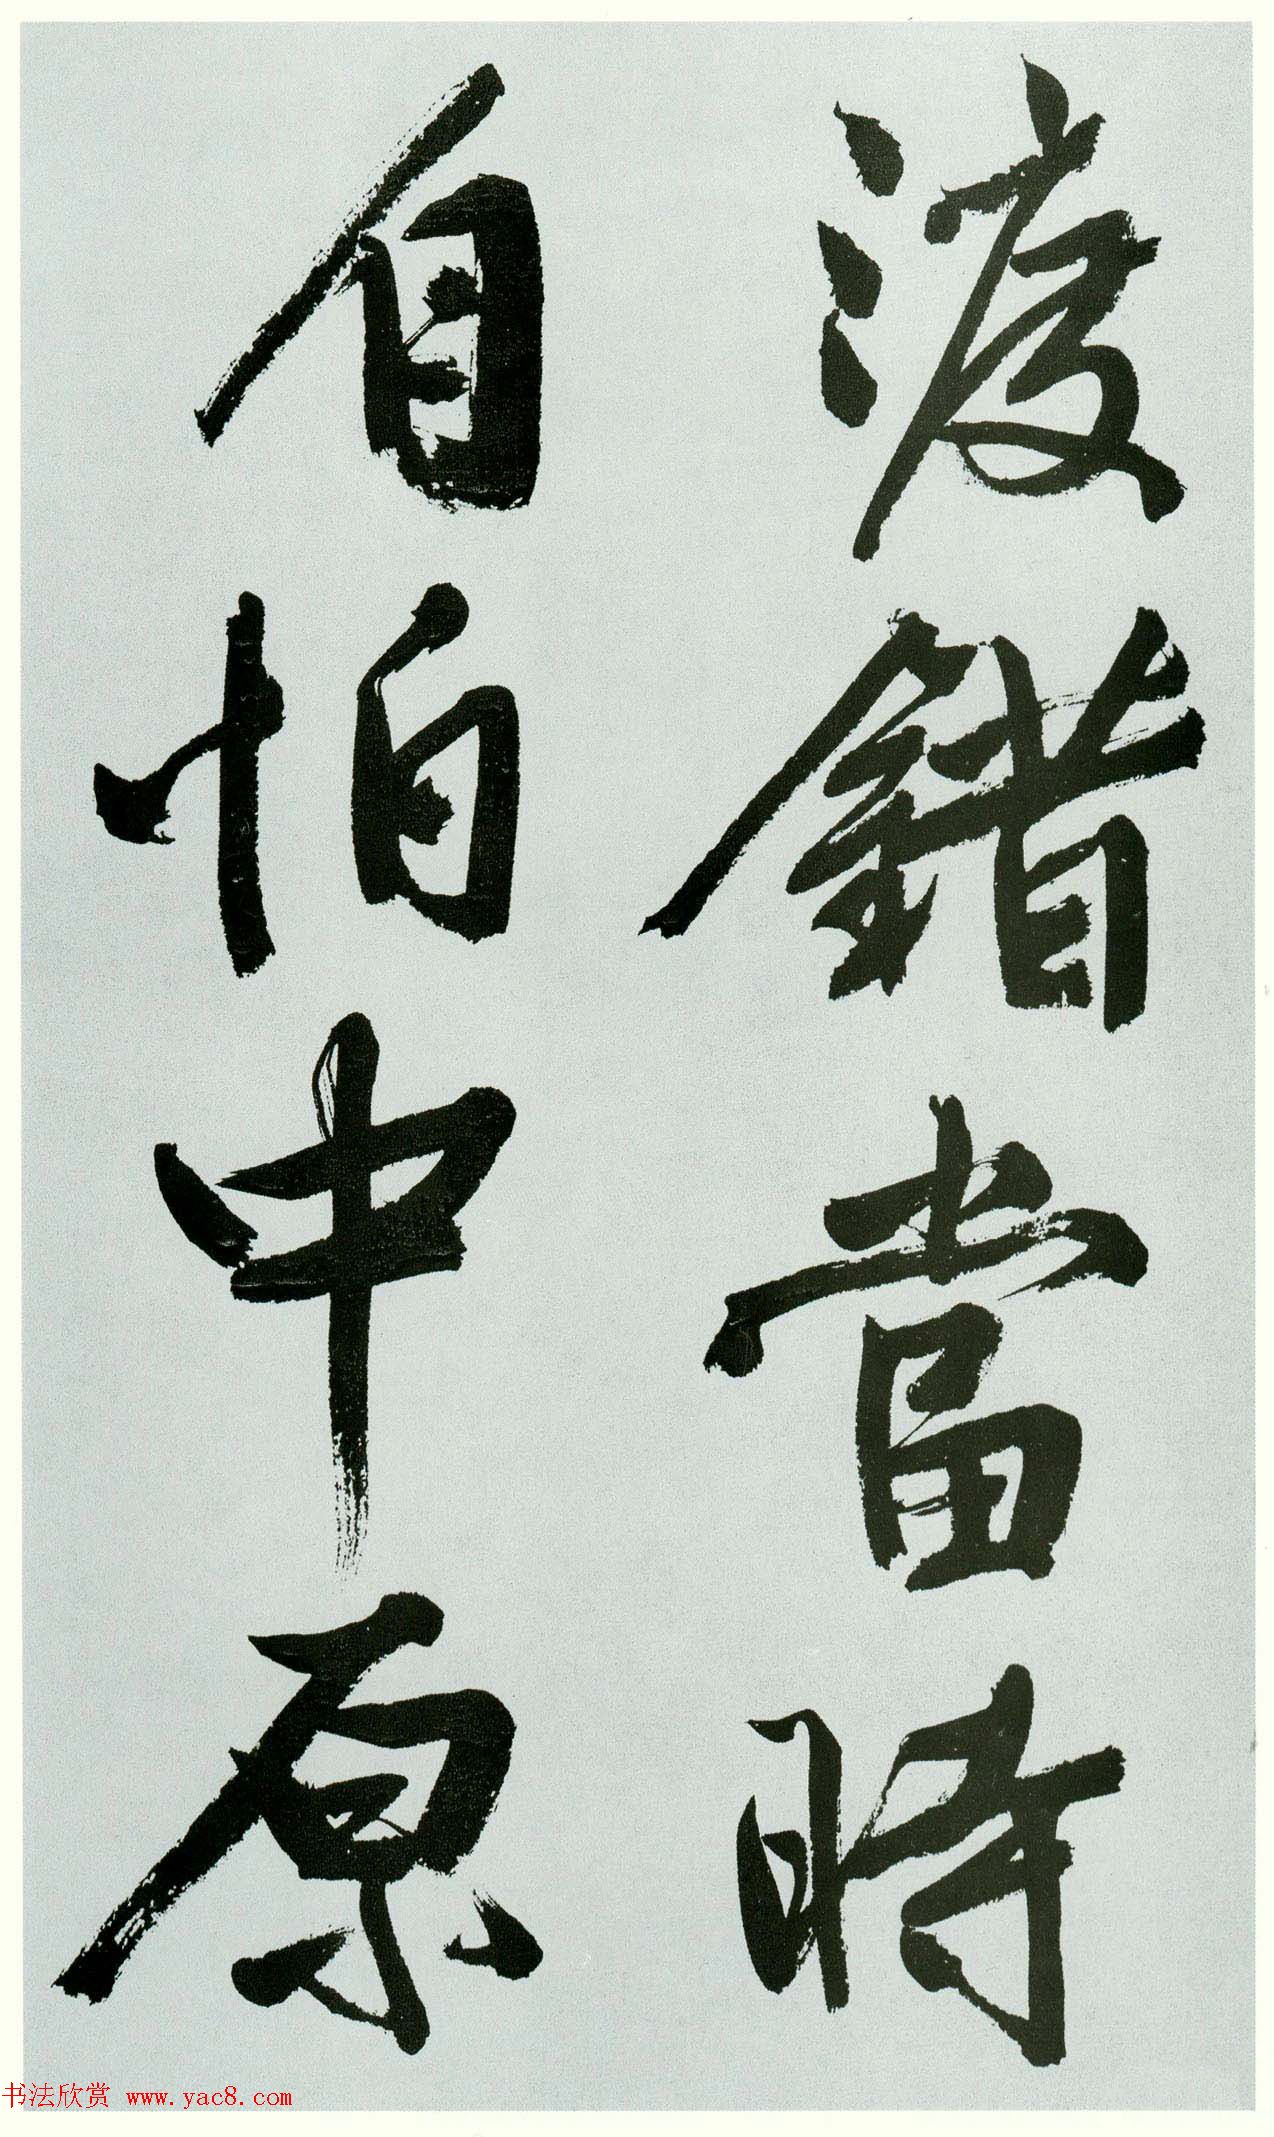 渡錯當時
自怕中原
书法欣赏 www.yac8.com